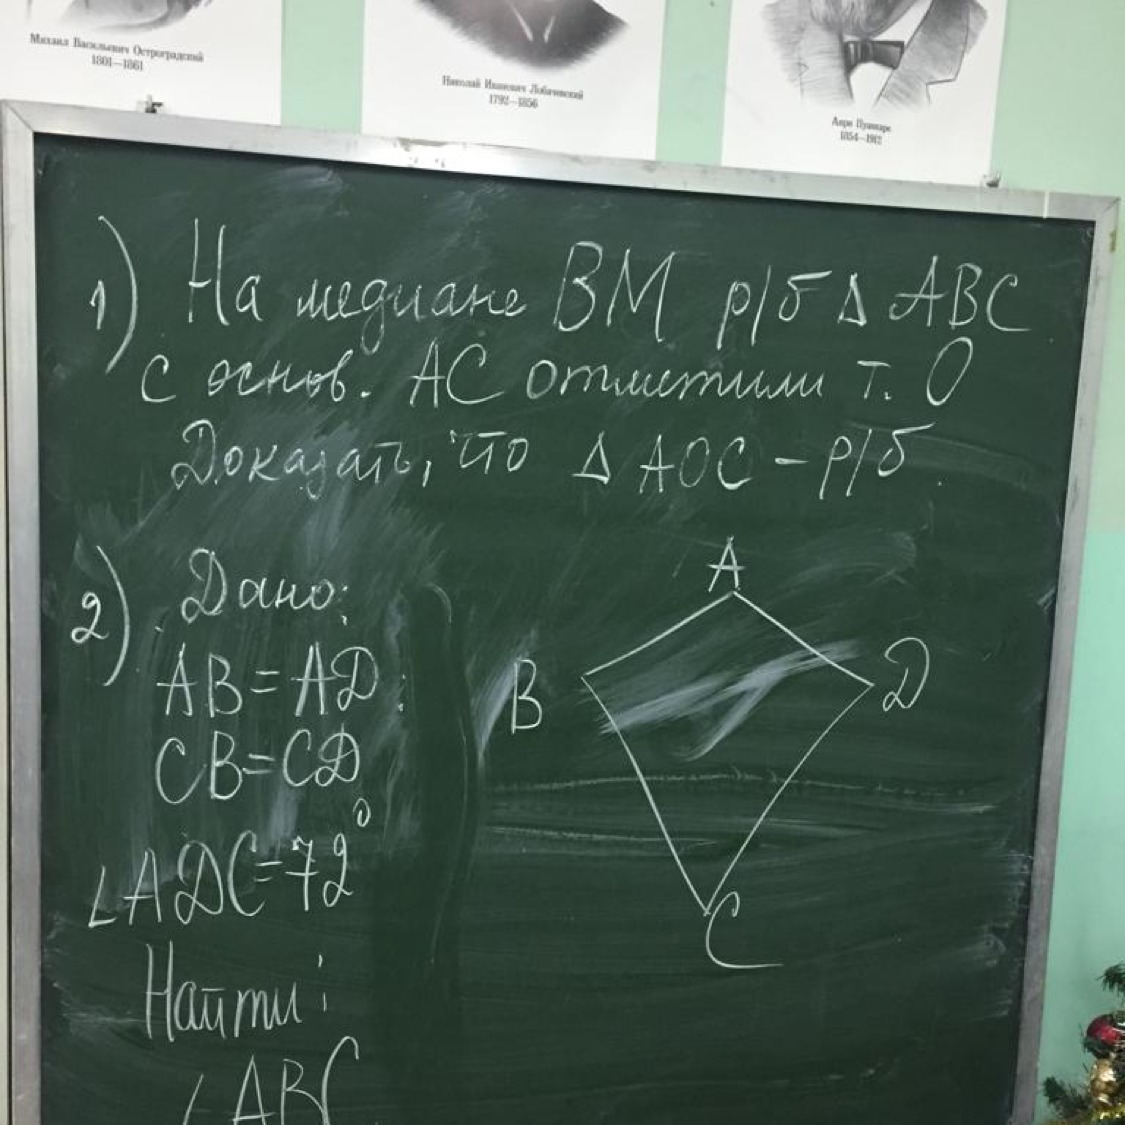 Михаил Васильевич Остроградский
1801—1861
Николай Иванович Лобачевский
1792—1856
Анри Пуанкаре
1854—1912
1) На медиане ВМ р/б Δ АВС
с основ. АС отметили т. О
Доказать, что Δ АОС – р/б.
2) Дано:
АВ = AD
СВ = CD
∠ADC = 72°
Найти:
∠ АВС
A
B
D
C